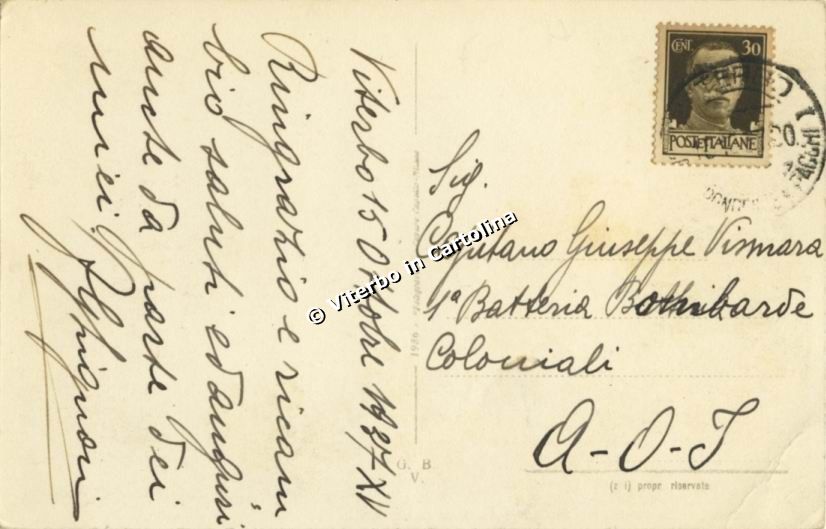 Viterbo 15 Ottobre 1937 XV
Ringrazio e ricam
bio saluti ed auguri
anche da parte dei
miei
CENT. 30
POSTE ITALIANE
Sig.
Capitano Giuseppe Vismara
1ª Batteria Bombarde
Coloniali
A-O-I
© Viterbo in Cartolina
1936
G. B.
V.
(z i) propr. riservata